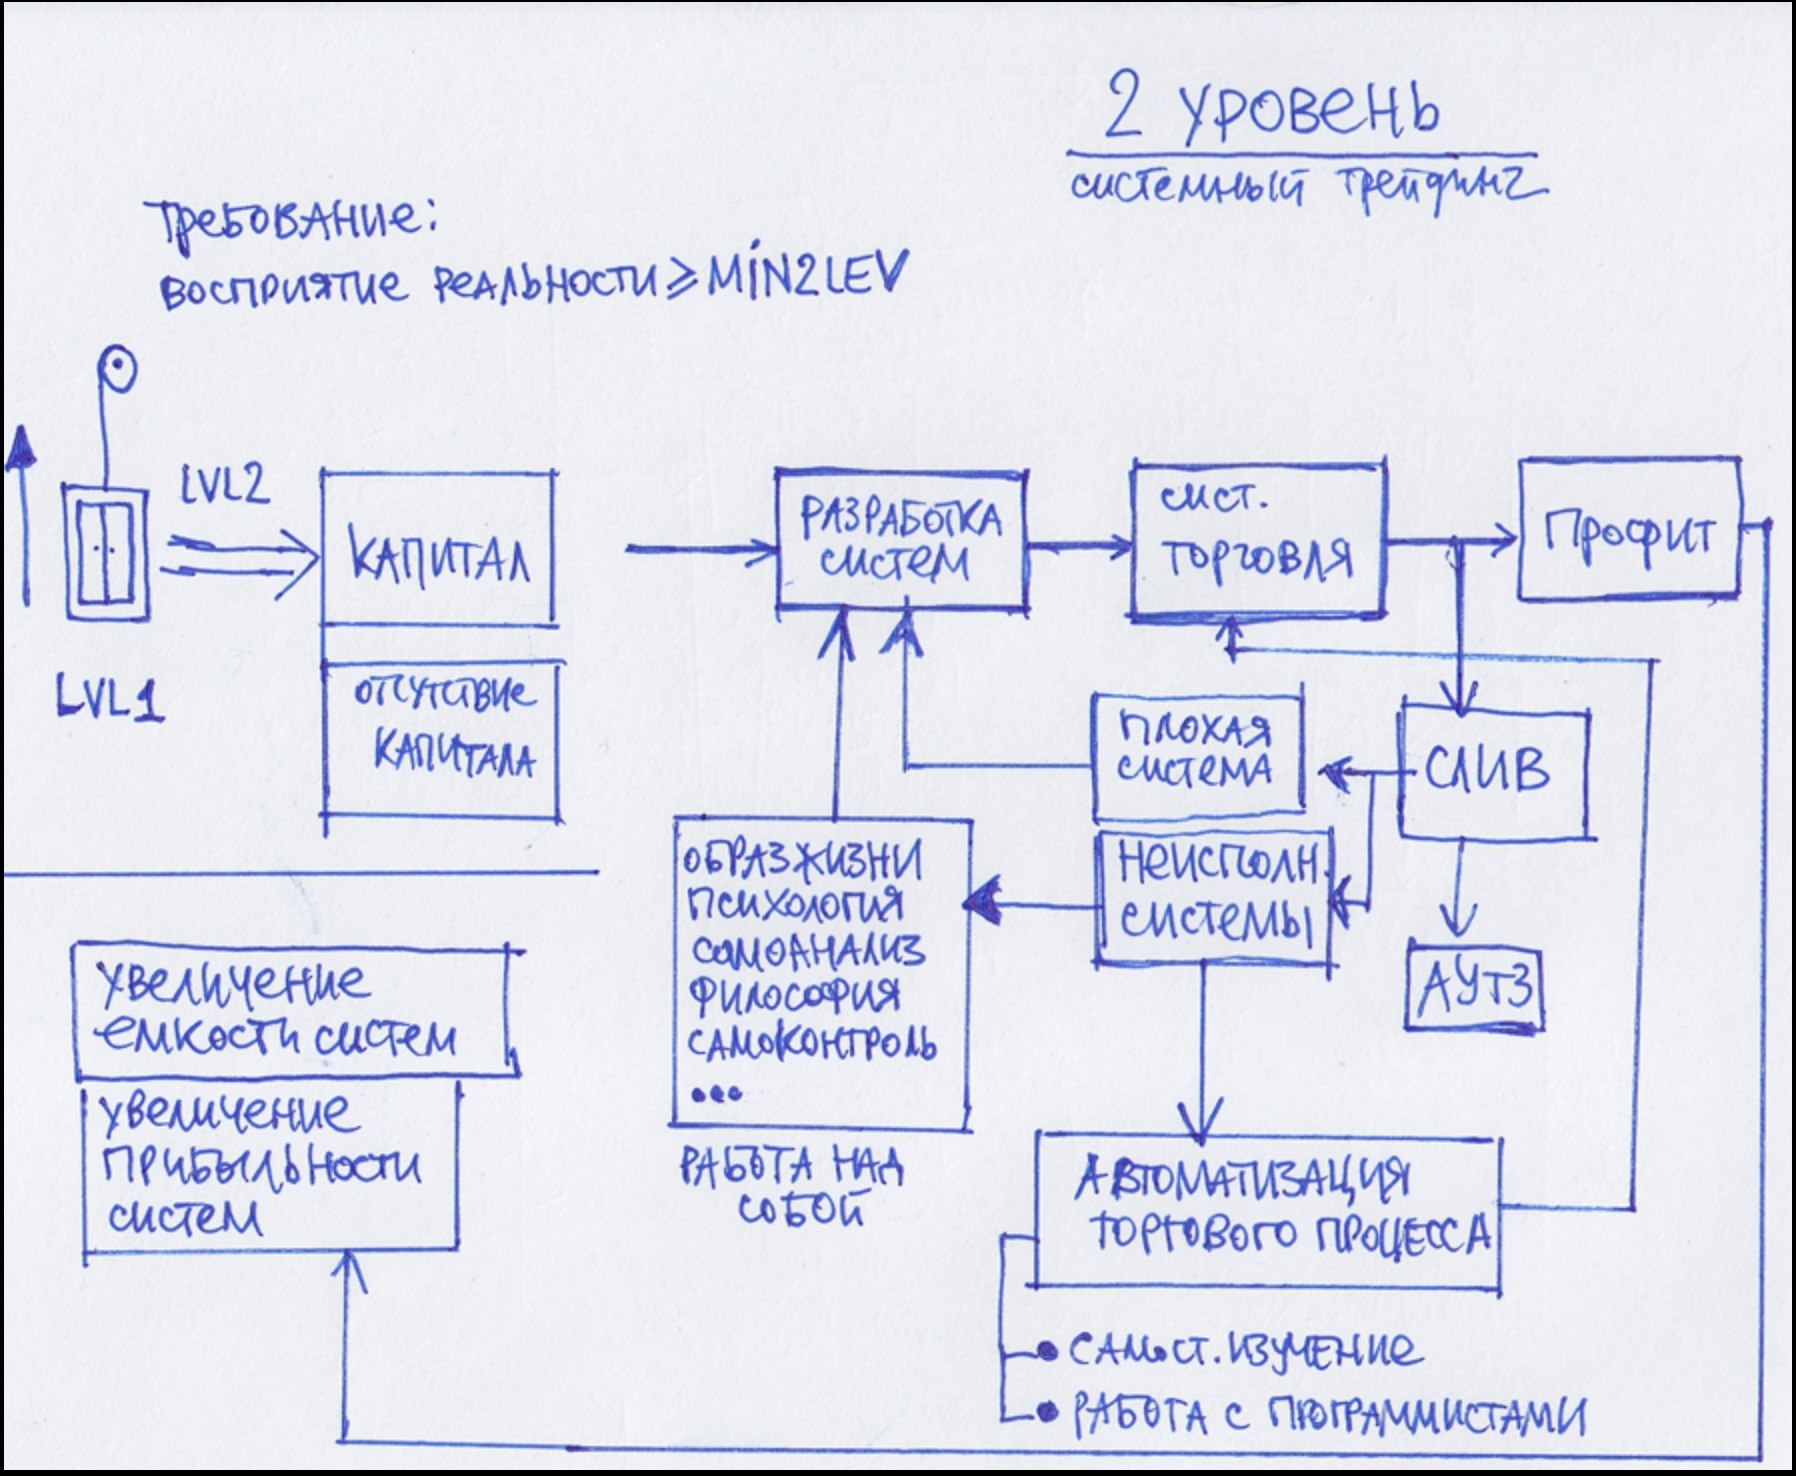 2 уровень
системный трейдинг
Требование:
восприятие реальности ≥ MIN2LEV
LVL2
LVL1
КАПИТАЛ
отсутствие
капитала
РАЗРАБОТКА
систем
сист.
торговля
Профит
плохая
система
СЛИВ
неисполн.
системы
АУТЗ
ОБРАЗ ЖИЗНИ
психология
самоанализ
философия
самоконтроль
•••
РАБОТА НАД
СОБОЙ
увеличение
емкости систем
увеличение
прибыльности
систем
АВТОМАТИЗАЦИЯ
торгового процесса
• самост. изучение
• РАБОТА с программистами